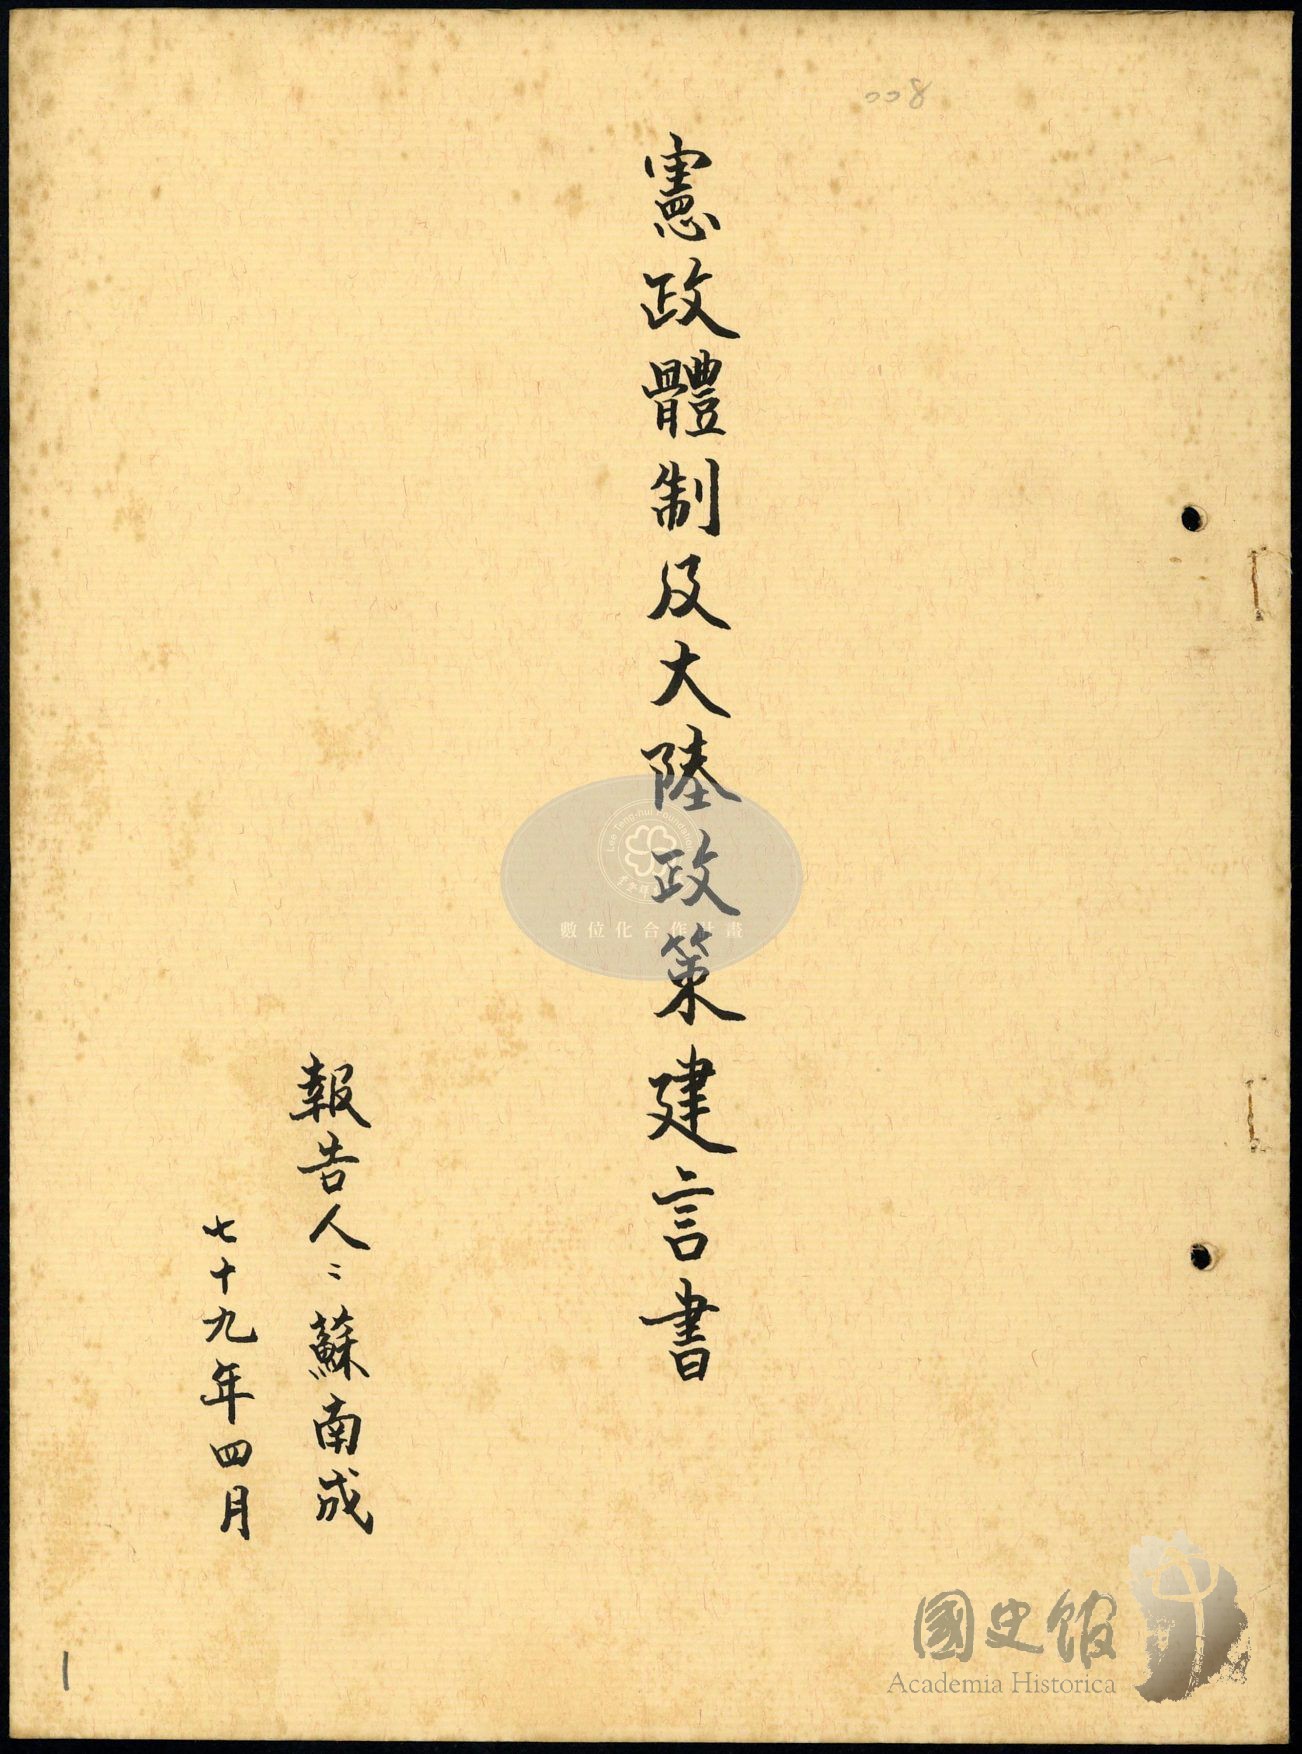 008
憲政體制及大陸政策建言書
報告人：蘇南成
七十九年四月
1
Lee Teng-hui Foundation
數位化合作計畫
國史館
Academia Historica